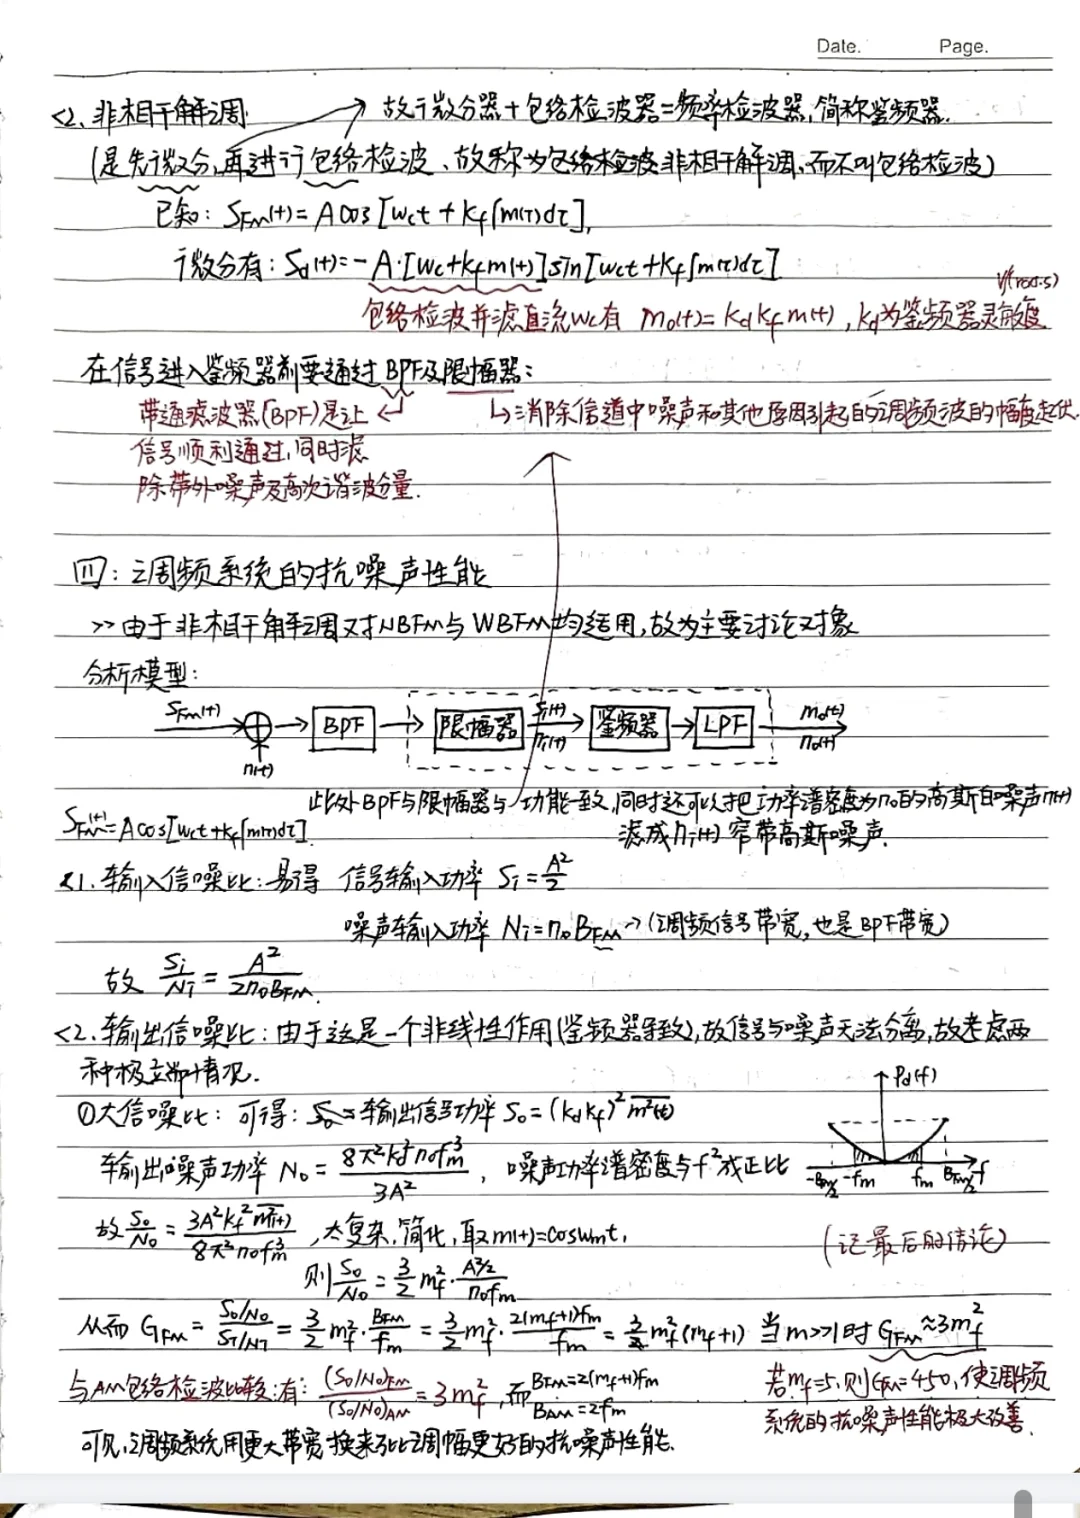 Date. Page.
<2. 非相干解调 → 故微分器+包络检波器=频率检波器,简称鉴频器.
(是先微分,再进行包络检波、故称为包络检波非相干解调,而不叫包络检波)
已知: S_FM(t)=Acos[wct+kf∫m(τ)dτ],
微分有: Sd(t)=-A·[wc+kfm(t)]sin[wct+kf∫m(τ)dτ]
V/(rad·s)
包络检波并滤直流wc有 mo(t)=kdkfm(t), kd为鉴频器灵敏度
在信号进入鉴频器前要通过BPF及限幅器:
带通滤波器(BPF)是让 ↳消除信道中噪声和其他原因引起的调频波的幅度起伏.
信号顺利通过,同时滤
除带外噪声及高次谐波分量.
四:调频系统的抗噪声性能
>>由于非相干解调对NBFM与WBFM均适用,故为主要讨论对象
分析模型:
S_FM(t) → ⊕ → BPF → 限幅器 Si(t) → 鉴频器 → LPF mo(t)
n(t) ni(t) no(t)
此处BPF与限幅器与↗功能一致,同时还可以把功率谱密度为n0的高斯白噪声n(t)
S_FM(t)=Acos[wct+kf∫m(τ)dτ]. 滤成ni(t)窄带高斯噪声.
<1.输入信噪比:易得 信号输入功率 Si=A²/2
噪声输入功率 Ni=n0B_FM→(调频信号带宽,也是BPF带宽)
故 Si/Ni=A²/2n0B_FM.
<2.输出信噪比:由于这是一个非线性作用(鉴频器导致),故信号与噪声无法分离,故考虑两
种极端情况. Pd(f)
①大信噪比: 可得: 输出信号功率 So=(kdkf)²m²(t)
输出噪声功率 No=8π²kd²n0fm³/3A², 噪声功率谱密度与f²成正比 -B_FM/2 -fm fm B_FM/2 f
故So/No=3A²kf²m²(t)/8π²n0fm³,太复杂,简化,取m(t)=coswmt, (记最后的结论)
则So/No=3/2 mf²·A²/2/n0fm
从而 G_FM=So/No/Si/Ni=3/2 mf²·B_FM/fm=3/2 mf²·2(mf+1)fm/fm=3mf²(mf+1) 当m>>1时G_FM≈3mf²
与AM包络检波比较:有: (So/No)FM/(So/No)AM=3mf²,而B_FM=2(mf+1)fm 若mf=5,则G_FM=450,使调频
B_AM=2fm 系统的抗噪声性能极大改善.
可见,调频系统用更大带宽换来了比调幅更好的抗噪声性能.